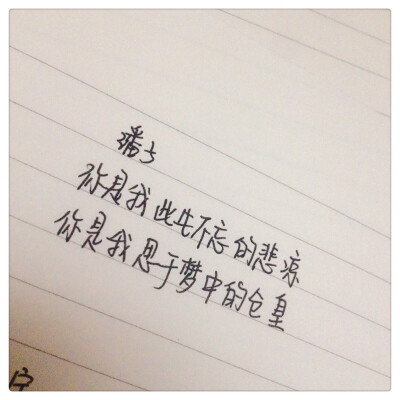 你是我此生不忘的悲凉
你是我思于梦中的仓皇